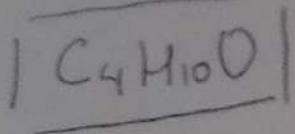 C₄H₁₀O